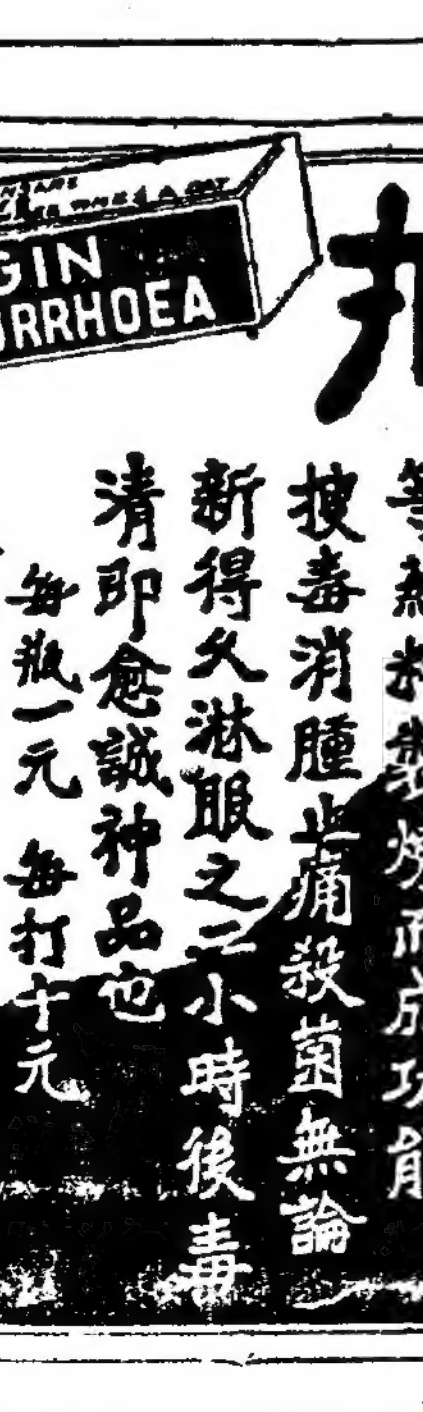 GIN
RRHOEA
製煉而成功能
搜毒消腫止痛殺菌無論
新得久淋服之二小時後毒
清即愈誠神品也
每瓶一元 每打十元